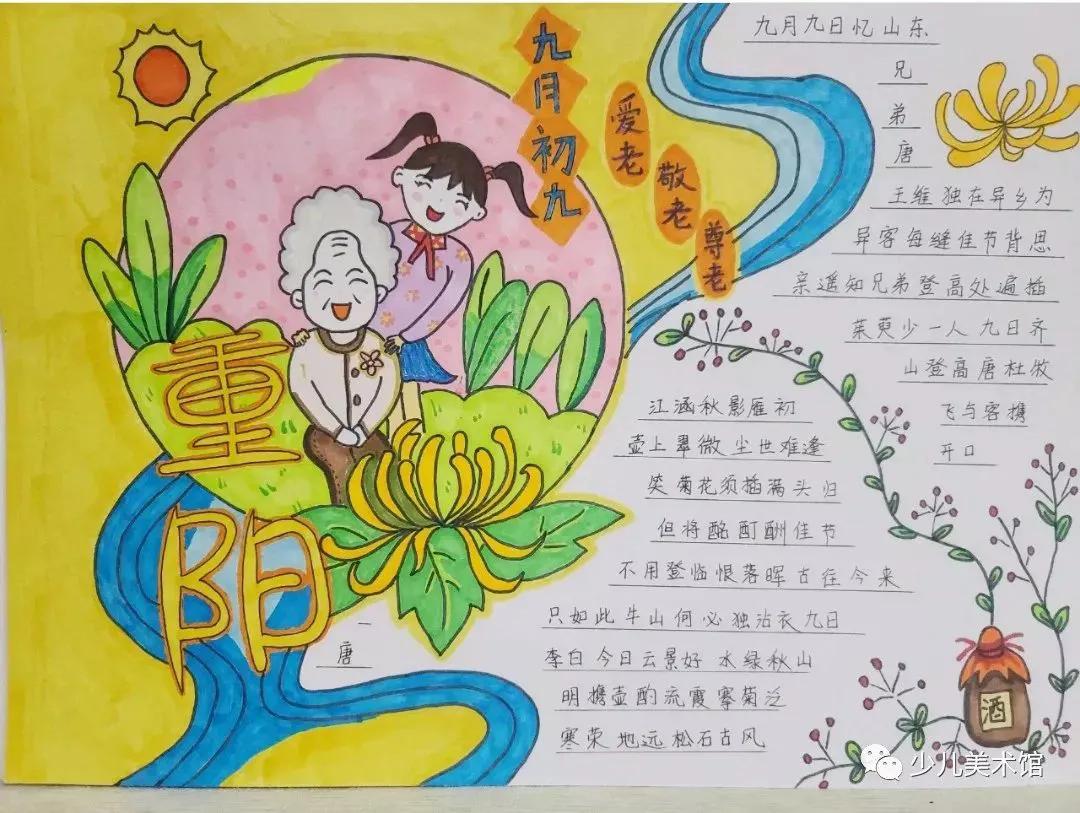 九月初九
爱老
敬老
尊老
重阳
九月九日忆山东
兄
弟
唐
王维独在异乡为
异客每缝佳节背思
亲遥知兄弟登高处遍插
茱萸少一人九日齐
山登高唐杜牧
江涵秋影雁初
飞与客携
壶上翠微尘世难逢
开口
笑菊花须插满头归
但将酩酊酬佳节
不用登临恨落晖古往今来
只如此牛山何必独沾衣九日
唐
李白今日云景好水绿秋山
明携壶酌流霞搴菊泛
寒荣地远松石古风
酒
少儿美术馆